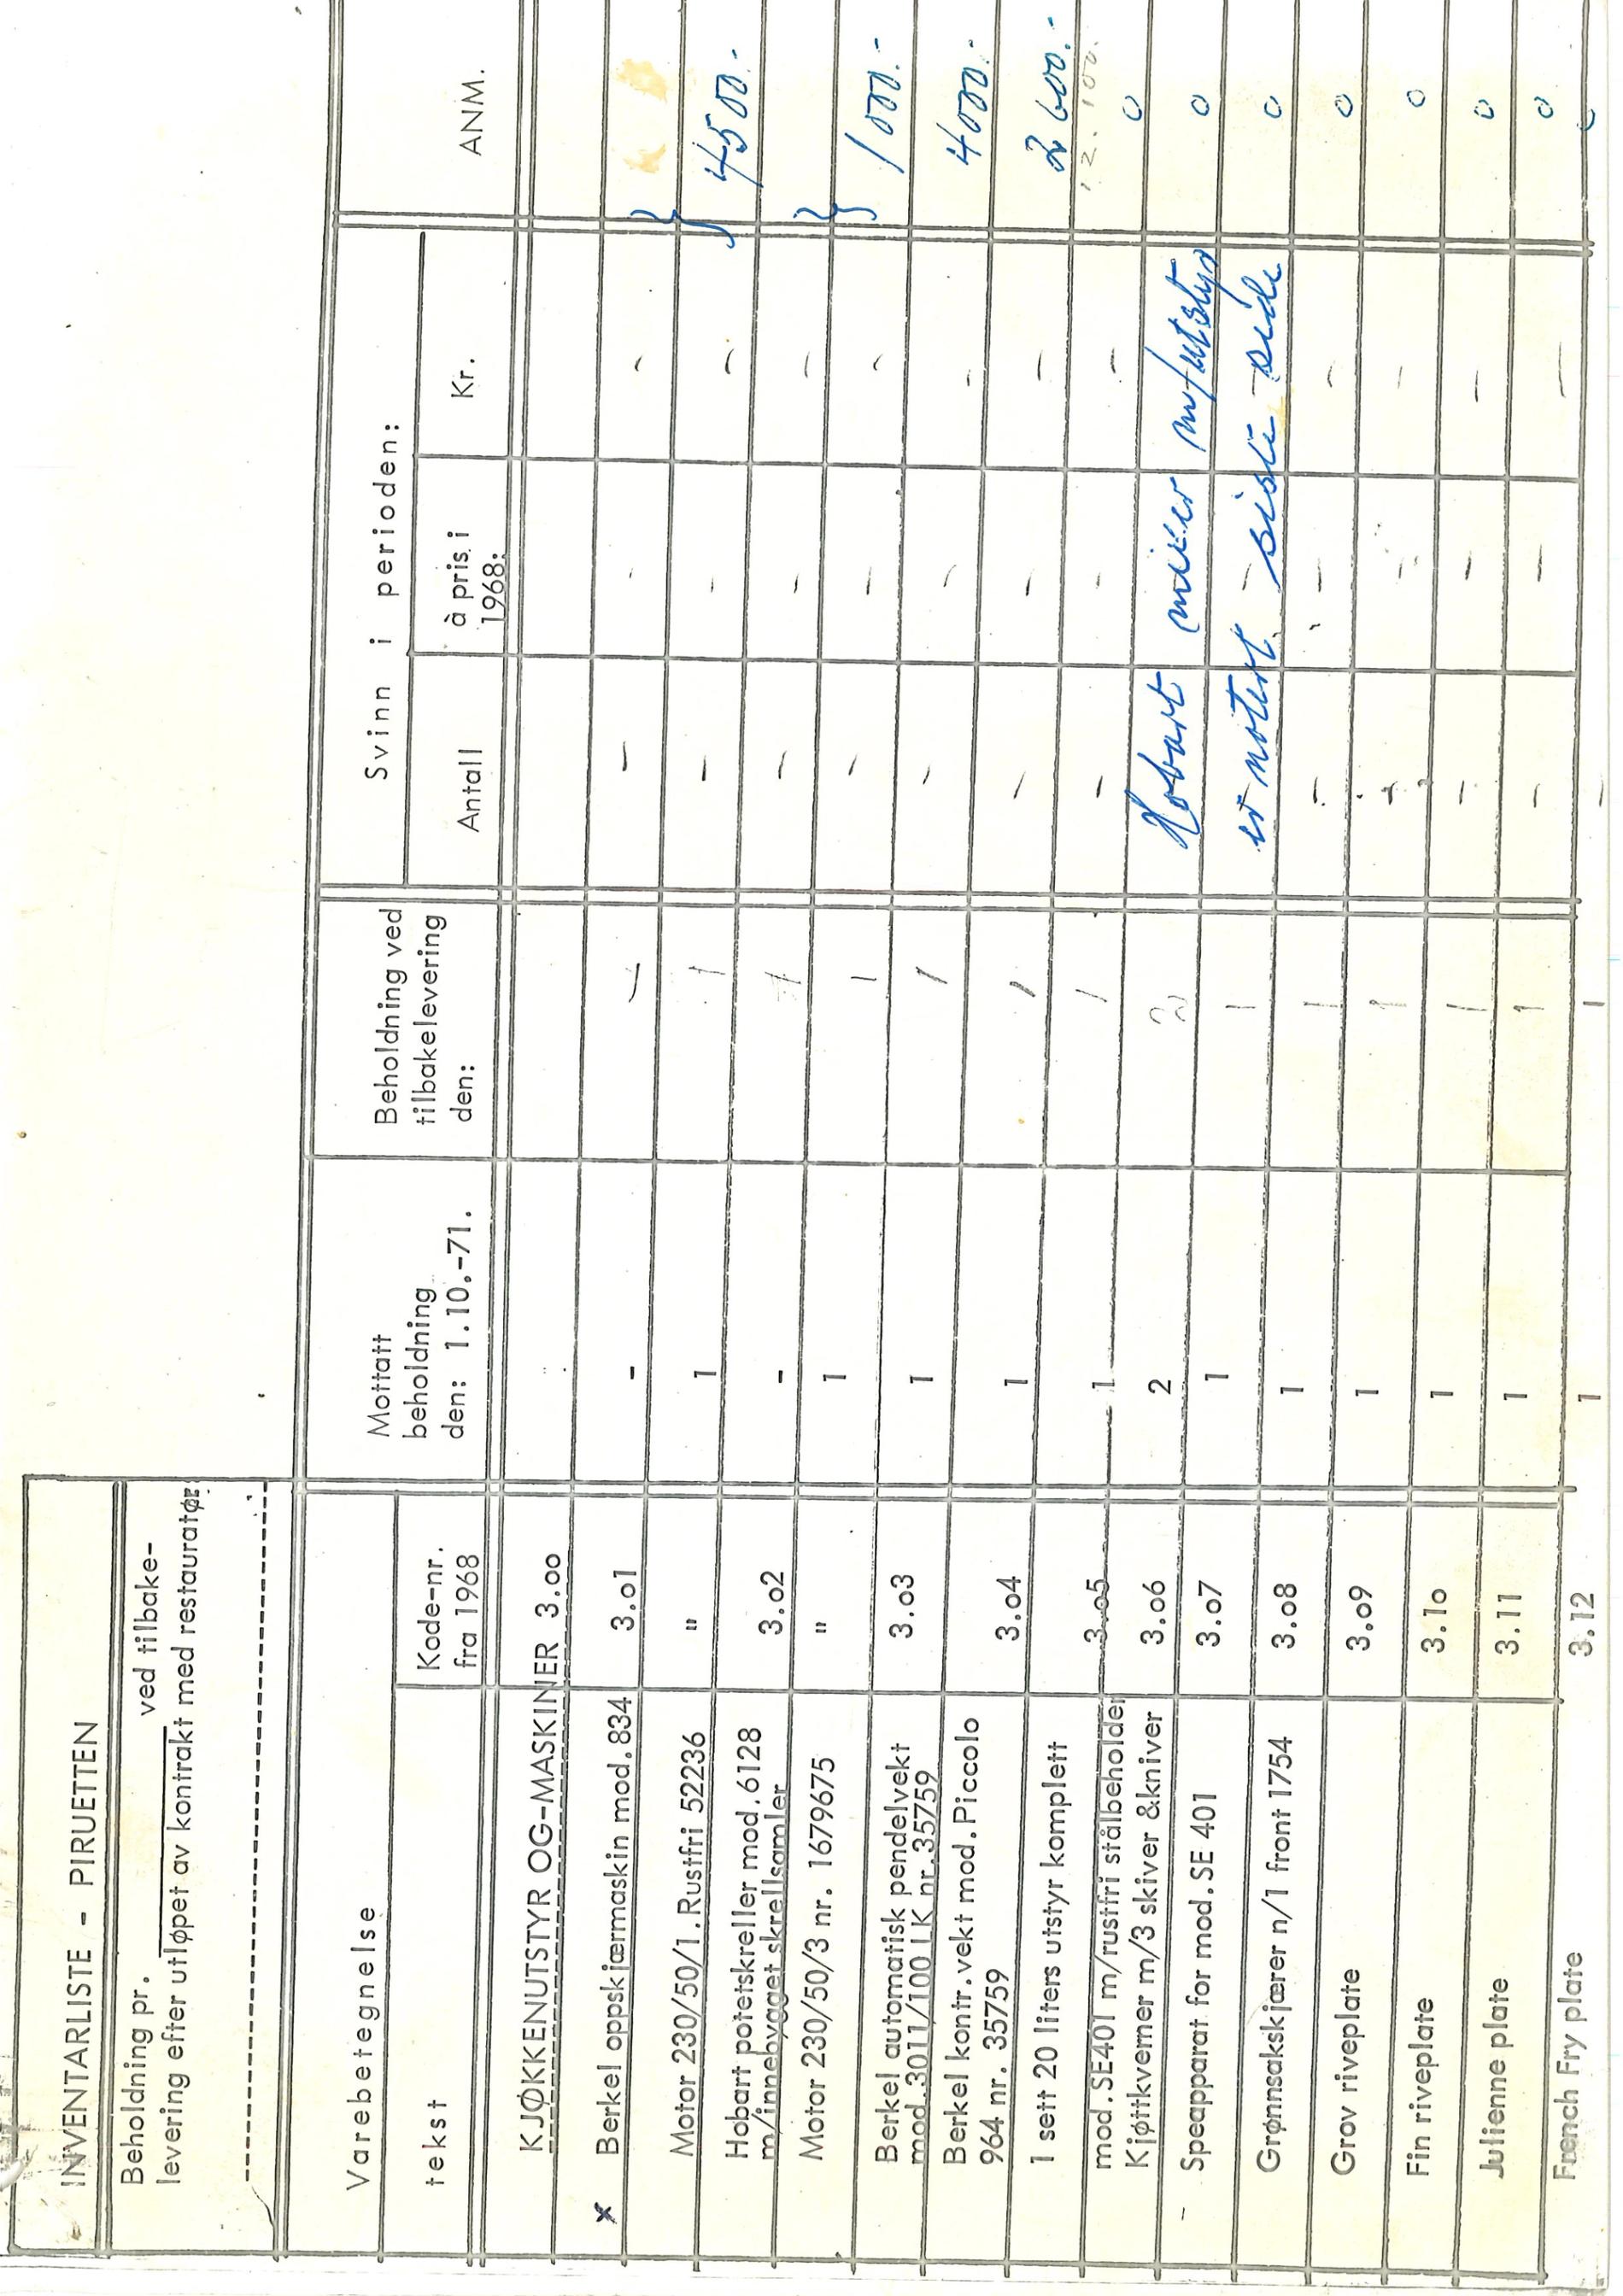 INVENTARLISTE - PIRUETTEN
Beholdning pr. ved tilbake-
levering efter utløpet av kontrakt med restauratør:
Varebetegnelse
Mottatt beholdning den: 1.10.-71.
Beholdning ved tilbakelevering den:
Svinn i perioden:
ANM.
tekst
Kode-nr. fra 1968
Antall
à pris i 1968:
Kr.
KJØKKENUTSTYR OG-MASKINER 3.oo
x Berkel oppskjærmaskin mod.834 3.o1 - - - - -
Motor 230/50/1.Rustfri 52236 " 1 1 - - - } 4500.-
Hobart potetskreller mod.6128
m/innebygget skrellsamler 3.o2 - 1 - - -
Motor 230/50/3 nr. 1679675 " 1 1 - - - } 1000.-
Berkel automatisk pendelvekt
mod.3011/100 LK nr.35759 3.o3 1 1 - - -
Berkel kontr.vekt mod.Piccolo
964 nr. 35759 3.o4 1 1 - - - 4000.-
1 sett 20 liters utstyr komplett
mod.SE401 m/rustfri stålbeholder 3.o5 1 1 - - - 2600.-
12.100.
Kjøttkverner m/3 skiver &kniver 3.o6 2 2 Hobart mixer m/utstyr 0
- Speapparat for mod.SE 401 3.o7 1 1 er notert - siste side 0
Grønnsakskjærer n/1 front 1754 3.o8 1 1 - - 0
Grov riveplate 3.o9 1 1 - - - 0
Fin riveplate 3.1o 1 1 - - - 0
Julienne plate 3.11 1 1 - - - 0
French Fry plate 3.12 1 1 - 0